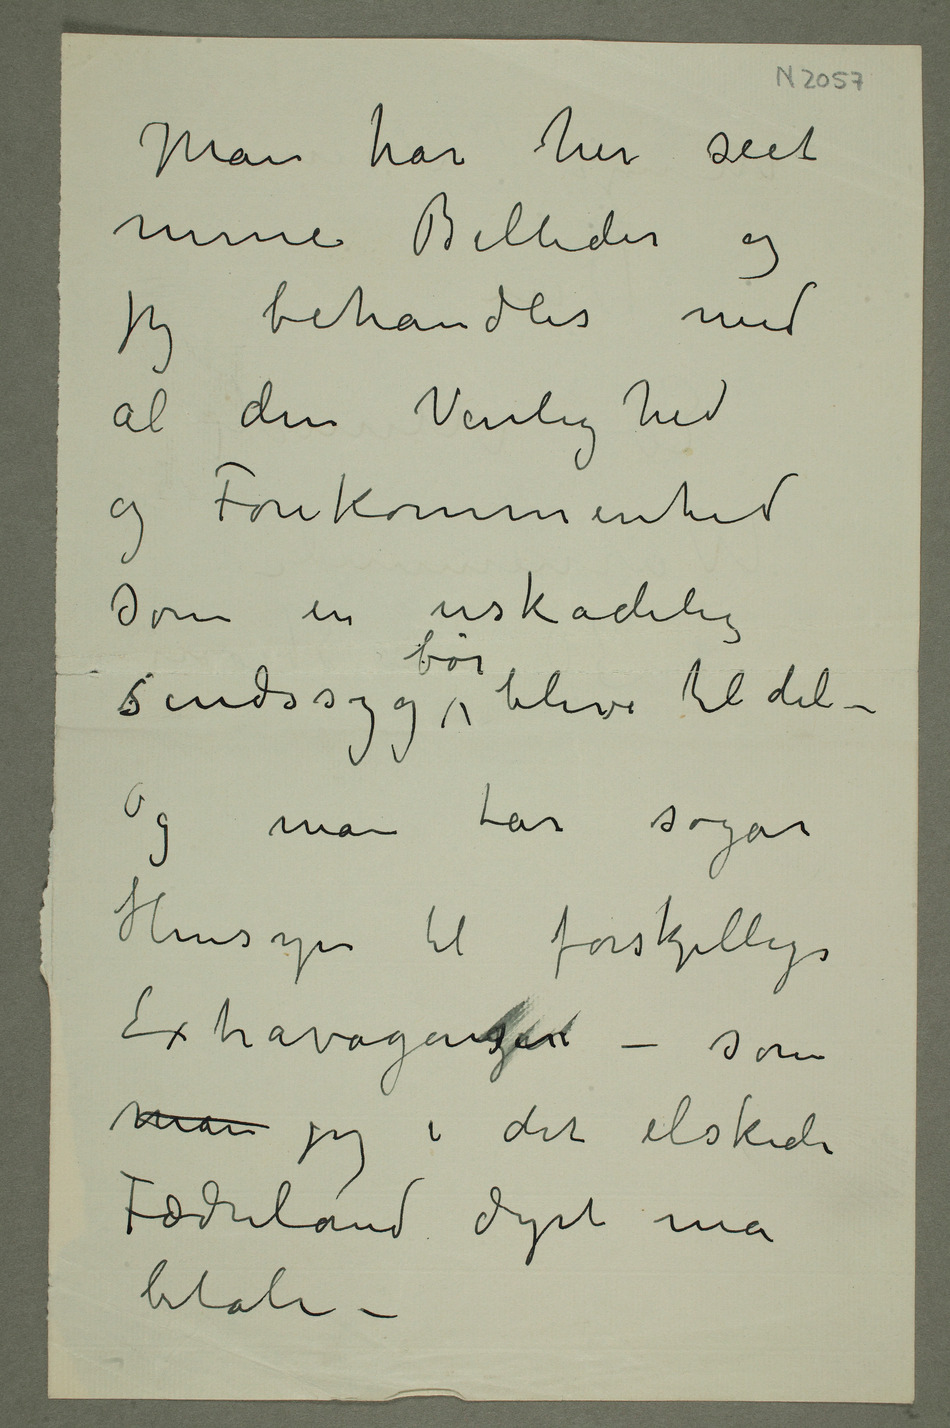 N 2057
Man har her seet
mine Billeder og
jeg behandles med
al den Venlighed
og Forekommenhed
som en uskadelig
bør
sindssyg blive til del –
Og man tar sogar
Hensyn til forskjellige
Extravagansen – som
man jeg i det elskede
Fædreland dyrt må
betale –